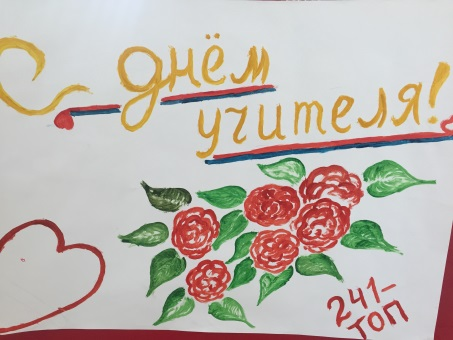 С днём
учителя!
241-
ТОП